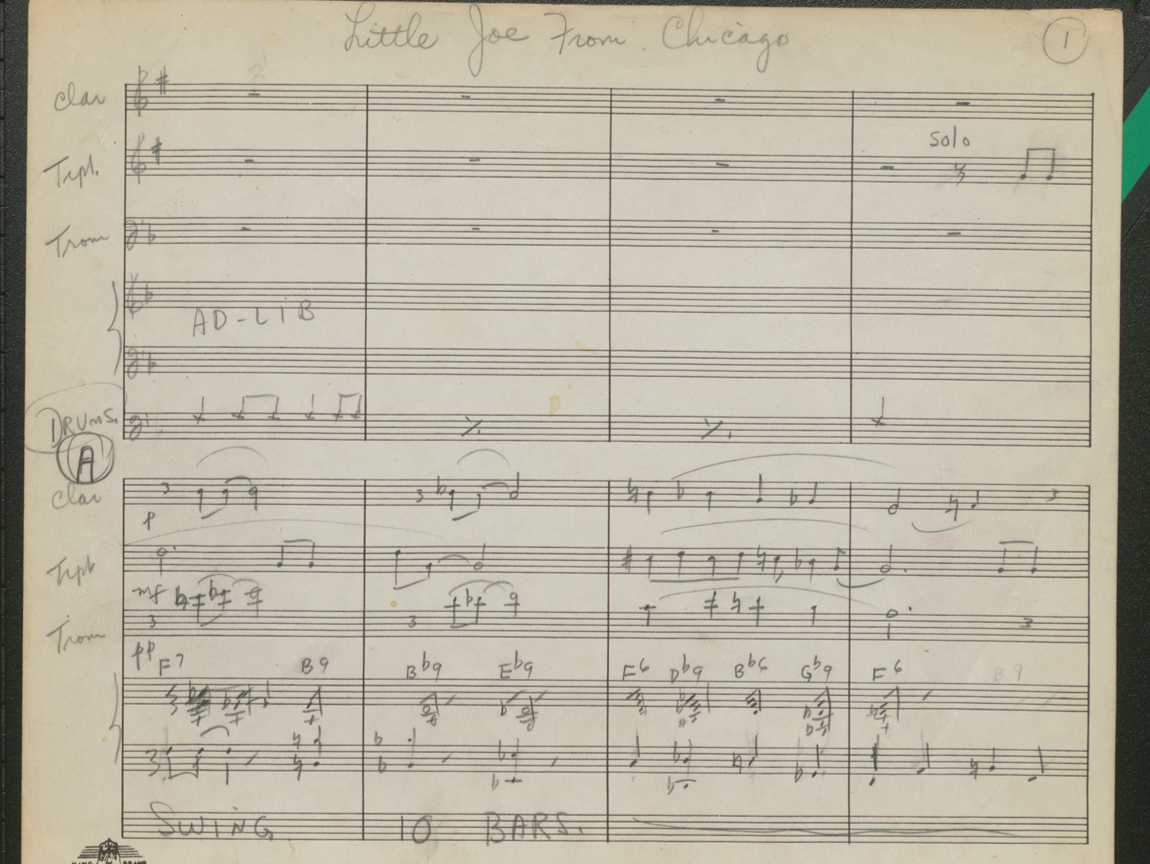 Little Joe From Chicago
1
Clar
Trpt.
Solo
Trom
AD-LiB
DRUMS.
A
Clar
p
Trpt
mf
Trom
pp
F7 B9 Bb9 Eb9 F6 Db9 Bb6 Gb9 F6 B9
SWiNG 10 BARS.